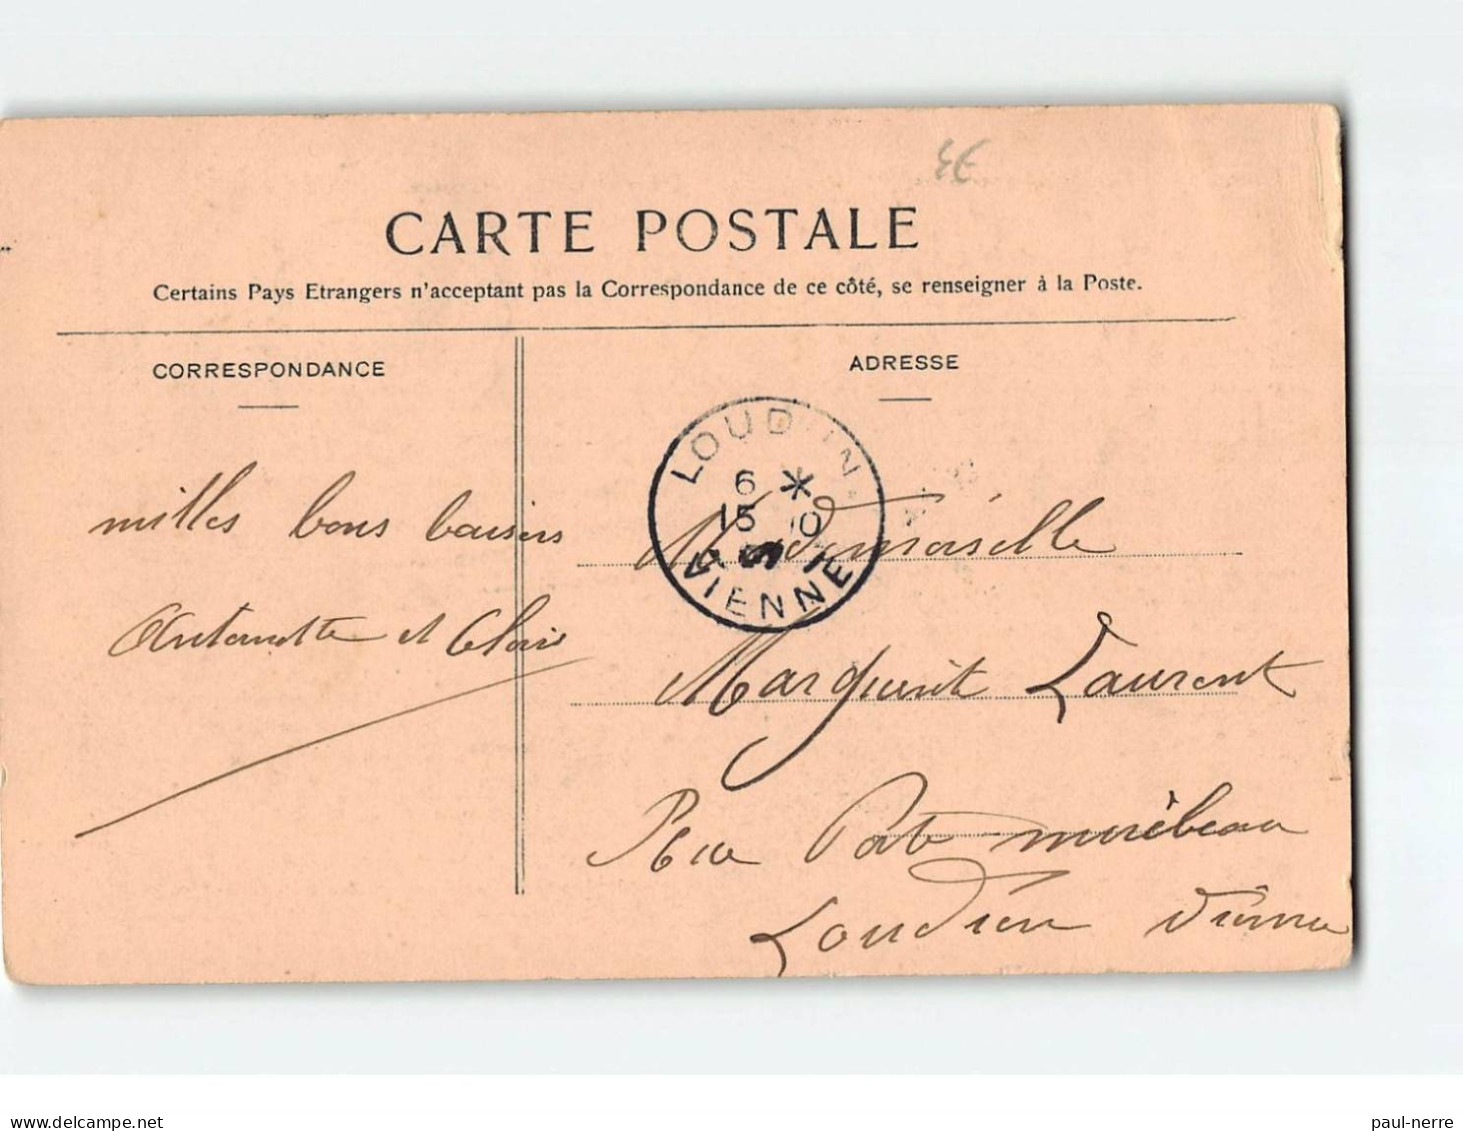 3€
CARTE POSTALE
Certains Pays Etrangers n'acceptant pas la Correspondance de ce côté, se renseigner à la Poste.
CORRESPONDANCE
milles bons baisers
Antoinette et Claire
ADRESSE
LOUDUN
6 *
15
VIENNE
Mademoiselle
Marguerite Laurent
Rue Porte mirèbeau
Loudun Vienne
paul-nerre